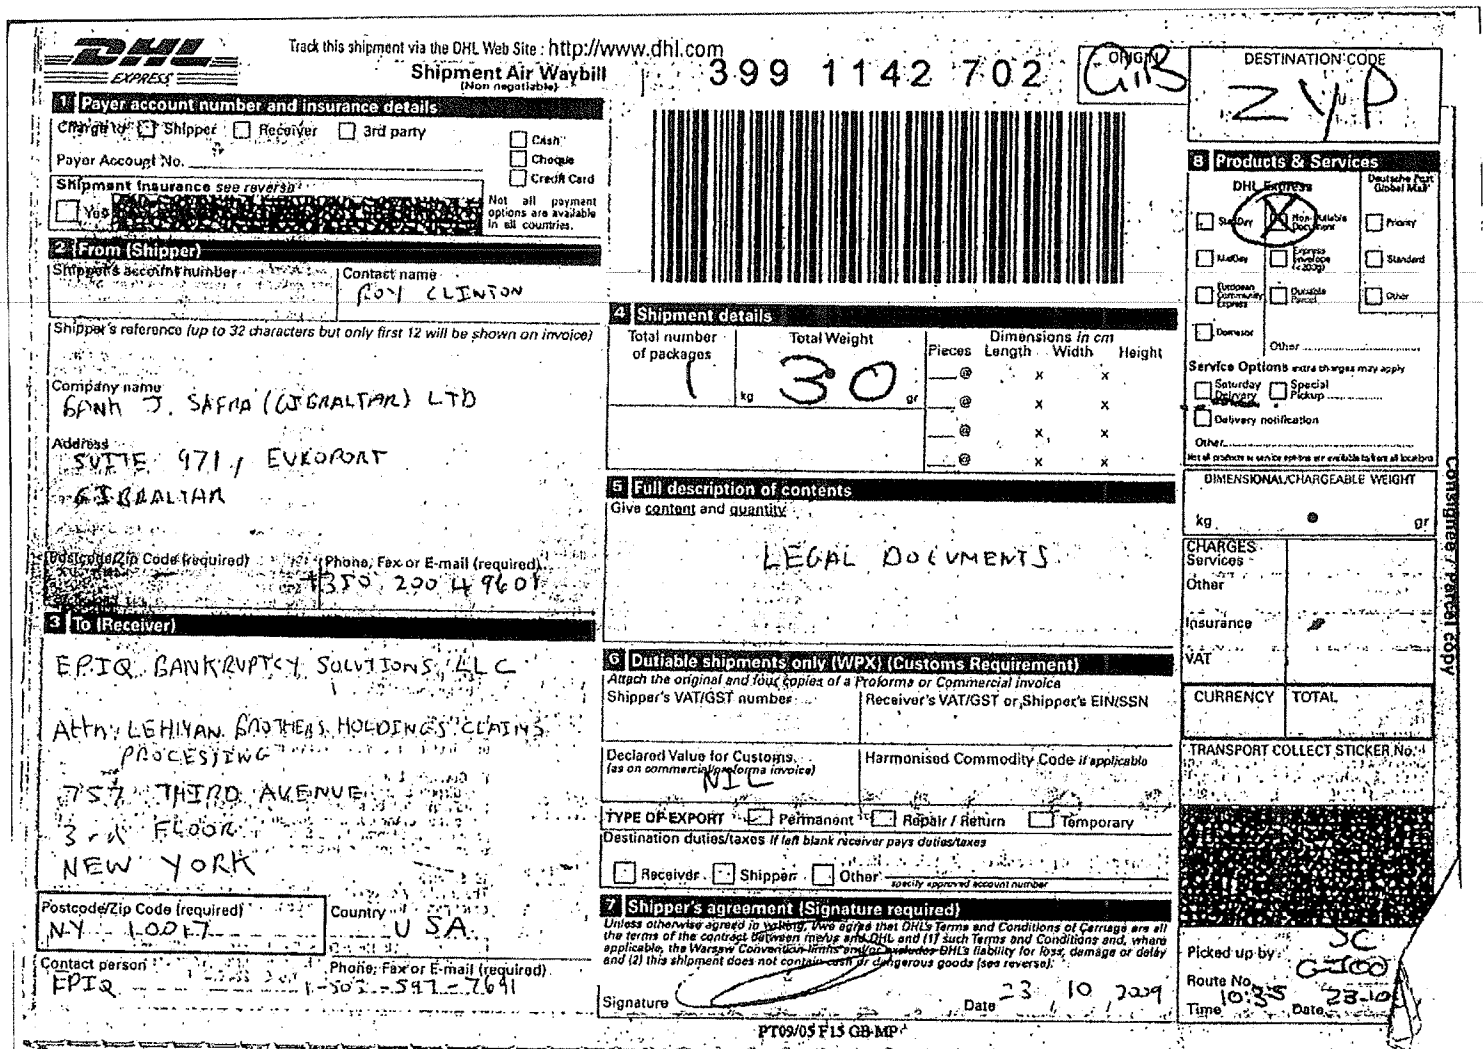 DHL
EXPRESS
Track this shipment via the DHL Web Site : http://www.dhl.com
Shipment Air Waybill
(Non negotiable)
399 1142 702
ORIGIN
GIB
DESTINATION CODE
ZYP
1 Payer account number and insurance details
Charge to Shipper Receiver 3rd party
Cash
Cheque
Credit Card
Payer Account No.
Shipment Insurance see reverse
Yes
Not all payment
options are available
in all countries.
2 From (Shipper)
Shipper's account number
Contact name
ROY CLINTON
Shipper's reference (up to 32 characters but only first 12 will be shown on invoice)
Company name
BANK J. SAFRA (GIBRALTAR) LTD
Address
SUITE 971, EUROPORT
GIBRALTAR
Postcode/Zip Code (required)
Phone, Fax or E-mail (required)
+350 200 49601
3 To (Receiver)
EPIQ BANKRUPTCY SOLUTIONS, LLC
Attn: LEHMAN BROTHERS HOLDINGS CLAIMS
PROCESSING
757 THIRD AVENUE
3rd FLOOR
NEW YORK
Postcode/Zip Code (required)
NY 10017
Country
USA
Contact person
EPIQ
Phone, Fax or E-mail (required)
1-503-597-7691
4 Shipment details
Total number
of packages
1
Total Weight
kg 3.0 gr
Dimensions in cm
Pieces Length Width Height
@ x x
@ x x
@ x x
@ x x
5 Full description of contents
Give content and quantity
LEGAL DOCUMENTS
6 Dutiable shipments only (WPX) (Customs Requirement)
Attach the original and four copies of a Proforma or Commercial invoice
Shipper's VAT/GST number
Receiver's VAT/GST or Shipper's EIN/SSN
Declared Value for Customs
(as on commercial/proforma invoice)
NIL
Harmonised Commodity Code if applicable
TYPE OF EXPORT Permanent Repair / Return Temporary
Destination duties/taxes If left blank receiver pays duties/taxes
Receiver Shipper Other
specify approved account number
7 Shipper's agreement (Signature required)
Unless otherwise agreed in writing, I/we agree that DHL's Terms and Conditions of Carriage are all
the terms of the contract between me/us and DHL and (1) such Terms and Conditions and, where
applicable, the Warsaw Convention limits and/or excludes DHL's liability for loss, damage or delay
and (2) this shipment does not contain cash or dangerous goods (see reverse).
Signature
Date 23, 10, 2009
PT09/05 F15 GB-MP
8 Products & Services
DHL Express
Deutsche Post
Global Mail
StartDay
Non-Dutiable
Document
Priority
MidDay
Express
Envelope
(<200g)
Standard
European
Community
Express
Dutiable
Parcel
Other
Domestic
Other
Service Options extra charges may apply
Saturday
Delivery
Special
Pickup
Delivery notification
Other
Not all products or service options are available to/from all locations
DIMENSIONAL/CHARGEABLE WEIGHT
kg gr
CHARGES
Services
Other
Insurance
VAT
CURRENCY TOTAL
TRANSPORT COLLECT STICKER No.
Picked up by SC
Route No. G-100
Time 10:35 Date 23-10
Consignee / Parcel copy